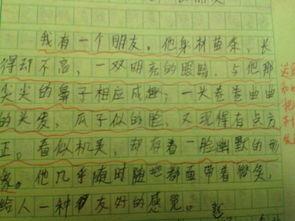 我有一个朋友，他身材苗条，长
得却不高，一双明亮的眼睛，与他那
尖尖的鼻子相应成趣，一头卷卷曲曲
的米发，瓜子似的脸，又现得有点方
正。看似机灵，却有着一脸幽默的形
象。他几乎随时随地都面带着微笑，
给人一种友好的感觉。